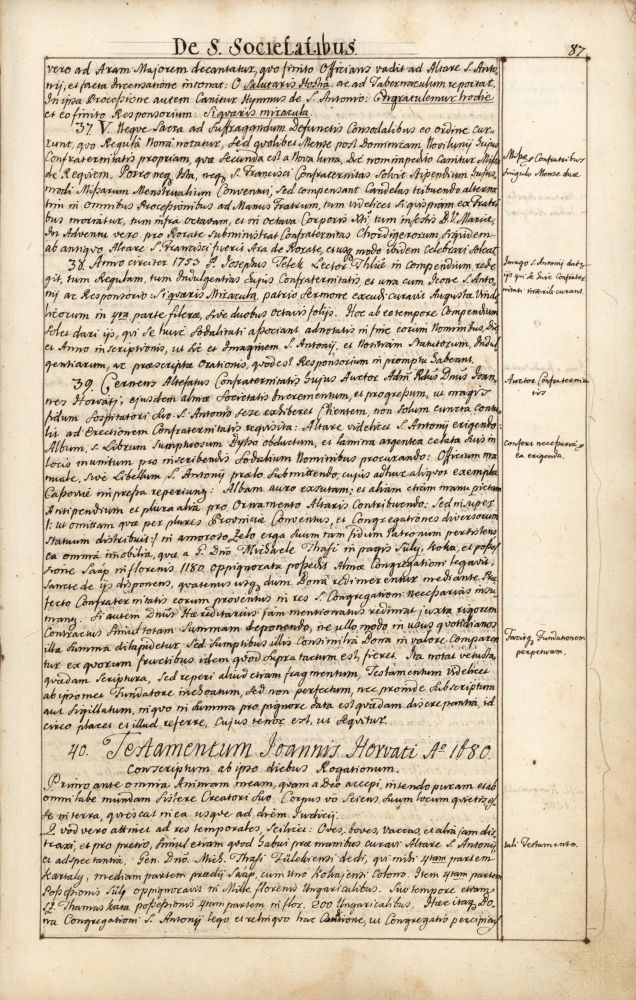 De S. Societatibus
87
vero ad Aram Majorem decantatur, quo finito Officians vadit ad Altare S. Anto-
nij, et facta Incensatione intonat: O Salutaris Hostia. ac ad Tabernaculum reportat.
In ipsa Processione autem Canitur Hymnus de S. Antonio: Congratulemur hodie
et eo finito Responsorium: Si quæris miracula.
37. V. Neque Sacra ad Suffragandum Defunctis Consodalibus eo ordine cur-
runt, quo Regula Nona notatur, sed quolibet Mense post Dominicam Novilunij Hujus
Confraternitatis propriam, quæ Secunda est a Nova luna, Die non impedito Canitur Missa
de Requiem. Porro neq3 Ista, neq3 S. Francisci Confraternitas Solvit Stipendium Hujus-
modi Missarum Menstrualium Conventui, sed compensant Candelas tribuendo alterna-
tim in Omnibus Processionibus ad Manus Fratrum, tum videlicet si quispiam ex Fratri-
bus moriatur, tum infra octavam, et in octava Corporis Xti, tum in festis B. V. Mariæ,
In Adventu vero pro Rorate Subministrat Confraternitas Chordigerorum siquidem
ab antiquo Altare S. Francisci fuerit Ara de Rorate, ibidem Celebrari solent
Missæ pro Confratribus
singulo Mense duæ
38. Anno circiter 1753 P. Josephus Telek Lector in Compendium rede-
git, tum Regulam, tum Indulgentias Hujus Confraternitatis, et una cum Icone S. Anto-
nij ac Responsorio: Si quæris Miracula, patrio Sermone excudi curavit Augustæ Vinde-
licorum in 4ta parte filera, sive duobus octavis folijs. Hoc ab eo tempore Compendium
solet dari ijs, qui se huic Sodalitati associant adnotatis in fine eorum Nominibus, Die
et Anno inscriptionis, ut sic et Imaginem S. Antonij, et Notitiam Statutorum, Indul-
gentiarum, ac præscriptæ Orationis, quod est Responsorium in promptu habeant.
Imago S. Antonij datur
ijs qui se huic Confrater-
nitati inseri curant.
39. Cernens Altefatus Confraternitatis Hujus Auctor Adm. Rdus Dnus Joan-
nes Horvatj, ejusdem almæ Societatis Incrementum, et progressum, ut magis
fidum Sospitatori suo S. Antonio sese exhiberet Clientem, non solum cuncta contu-
lit ad Erectionem Confraternitatis requisita: Altare videlicet S. Antonij erigendo:
Album, s. Librum Sumptuosum Bysso obductum, et lamina argentea celata suis in
locis munitum pro inscribendis Sodalium Nominibus procurando: Officium ma-
nuale, sive Libellum S. Antonij prælo submittendo, cujus adhuc aliquot exempla
Cassoviæ impressa reperiunt: Albam auro exsutam; et aliam etiam manu pictam
Antipendium et plura alia pro Ornamento Altaris Contribuendo: Sed insuper
/: ut omittam quæ per plures Provinciæ Conventus, et Congregationes diversorum
Statuum distribuit :/ in amoroso Zelo erga suum tam fidum Patronum persistens
ea omnia imobilia, quæ a G. Dno Michaele Thasi in pagis Süly, Koka, et posses-
sione Saáp in florenis 1180. oppignorata possedit Almæ Congregationi legavit,
Sancte de ijs disponens, quatenus usq3 dum Bona redimerentur mediante Præ-
fecto Confraternitatis eorum proventus in res S. Congregationi necessarias insu-
mant. Si autem Dnus Hæreditarius jam mentionatus redimat juxta rigorem
Contractus simul totam Summam deponendo, ne ullo modo in usus quotidianos
illa Summa dilapidetur, sed Sumptibus illis consimilia Bona in valore comparen-
tur ex quorum fructibus idem quod supra tactum est, fieret. Ita notat vetusta
quædam Scriptura, Sed reperi aliud etiam fragmentum, Testamentum videlicet
ab ipsomet Fundatore inchoatum, sed non perfectum, nec proinde subscriptum
aut Sigillatum, in quo in Summa pro pignore data est quædam discrepantia, id-
circo placet et illud referre, Cujus tenor est, ut sequitur.
Auctor Confraternita-
tis
confert necessaria p
ea erigenda.
Fundationem
perpetuam.
40. Testamentum Joannis Horvati Ao 1680.
Conscriptum ab ipso diebus Rogationum.
Primo ante omnia Animam meam, quam a Deo accepi, intendo puram et ab
omni labe mundam sistere Creatori suo. Corpus vo sciens suum locum quietis es-
se in terra, quiescat in ea usque ad diem Judicij.
Quod vero attinet ad res temporales, scilicet: Oves, boves, vaccas, et alia jam dis-
traxi, et pro pretio, simul etiam quod habui præ manibus curavi Altare S. Antonij
et ad spectantia. Gen. Dno. Mich. Thasi Fülekiensi dedi, qui mihi 4tam partem
Kartaly, mediam partem prædij Saáp, cum uno Kokajensi Colono. Item 4tam partem
Possessionis Süly oppignoravit in Mille florenis Ungaricalibus. Suo tempore etiam
D. Thamas kata possessionis 4tam partem in flor. 200 Ungaricalibus. Hæc itaq3 Bo-
na Congregationi S. Antonij lego et relinquo hac Conditione, ut Congregatio percipiat
tali Testamento.